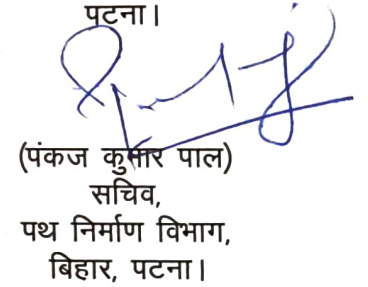 पटना।
(पंकज कुमार पाल)
सचिव,
पथ निर्माण विभाग,
बिहार, पटना।